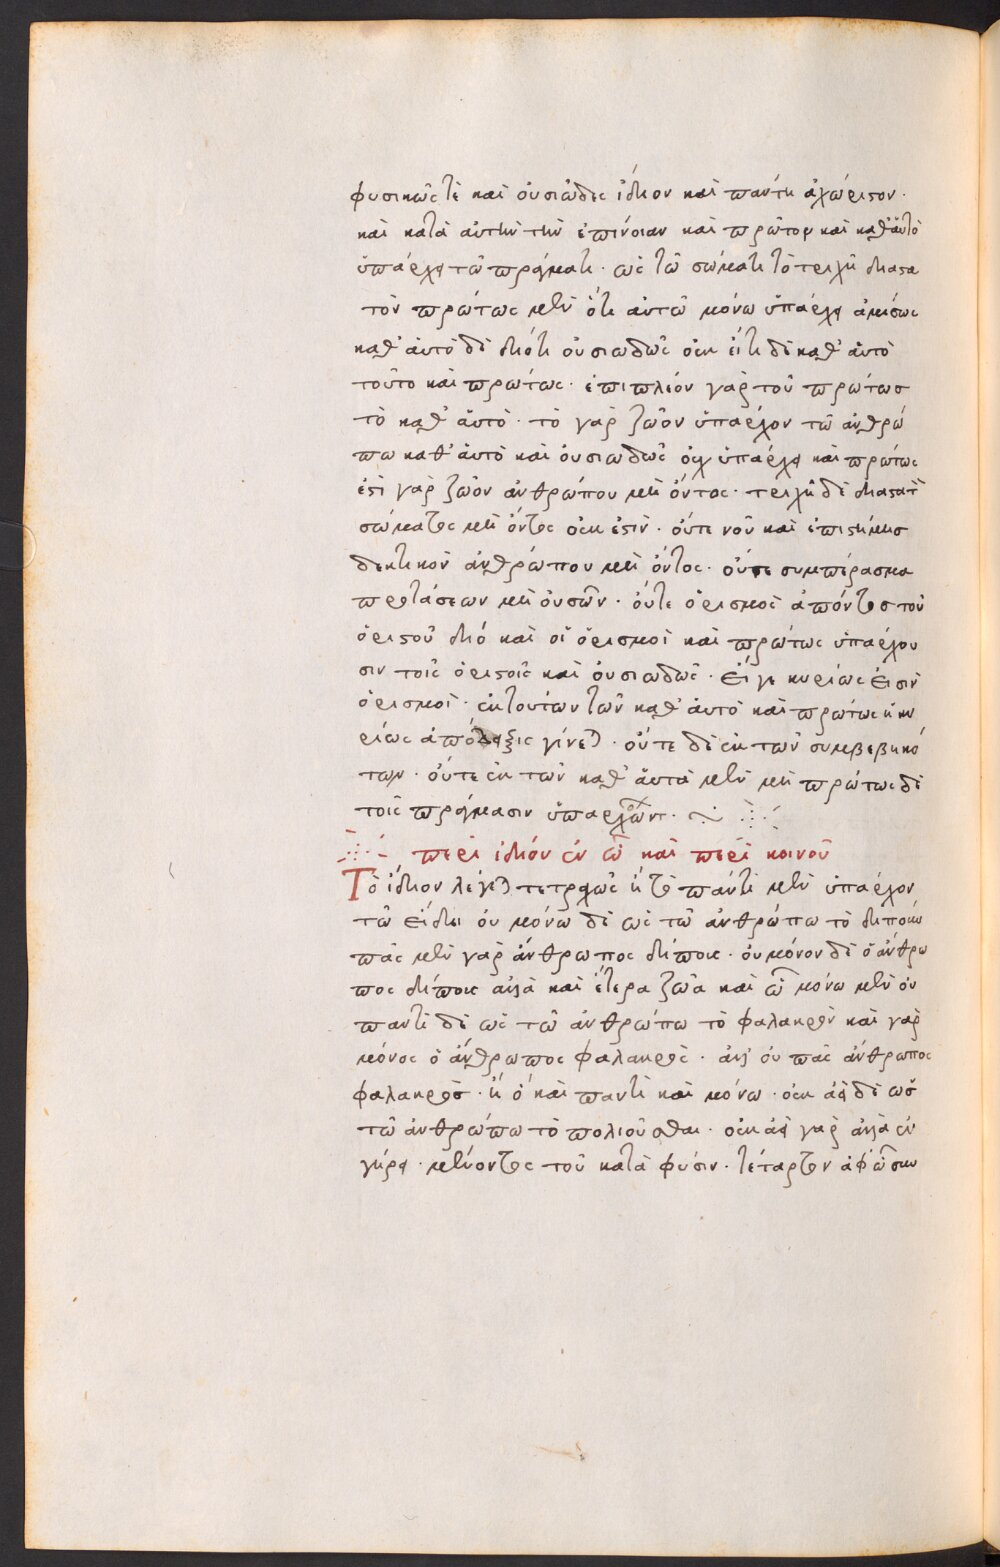 φυσικῶς τὲ καὶ οὐσιῶδες ἴδιον καὶ παντη ἀχώριστον·
καὶ κατὰ αὐτὴν τὴν ἐπίνοιαν καὶ πρῶτον καὶ καθ' αὑτὸ
ὑπάρχει τῶ πράγματι· ὡς τῶ σώματι τὸ τριχῆ διαστα
τὸν πρώτως μὲν ὅτι αὐτῶ μόνω ὑπάρχει ἀμέσως
καθ' αὑτὸ δὲ διότι οὐσιωδῶς οὐκ εἴ τι δὲ καθ' αὑτὸ
τοῦτο καὶ πρώτως· ἐπιπλέον γὰρ τοῦ πρώτως
τὸ καθ' αὑτὸ· τὸ γὰρ ζῶον ὑπάρχον τῶ ἀνθρώ
πω καθ' αὑτὸ καὶ οὐσιωδῶς οὐχ ὑπάρχει καὶ πρώτως
ἔστι γὰρ ζῶον ἀνθρώπου μὴ ὄντος· τριχῆ δὲ διαστατὸν
σώματος μὴ ὄντος οὐκ ἔστιν· οὔτε νοῦ καὶ ἐπιστήμης
δεκτικὸν ἀνθρώπου μὴ ὄντος· οὔτε συμπέρασμα
προτάσεων μὴ οὐσῶν· οὔτε ὁρισμὸς ἀπόντος τοῦ
ὁριστοῦ διό καὶ οἱ ὁρισμοὶ καὶ πρώτως ὑπάρχου
σιν τοῖς ὁριστοῖς καὶ οὐσιωδῶς· εἴ γε κυρίως εἰσὶν
ὁρισμοί· ἐκ τούτων τῶν καθ' αὑτὸ καὶ πρώτως ἡ κυ
ρίως ἀπόδειξις γίνεται· οὔτε δὲ ἐκ τῶν συμβεβηκό
των· οὔτε ἐκ τῶν καθ' αὑτὰ μὲν μὴ πρώτως δὲ
τοῖς πράγμασιν ὑπαρχόντων·
περι ἰδιόν ἐν ὧ καὶ περὶ κοινοῦ
Τὸ ἴδιον λέγεται τετραχῶς ἢ τὸ παντὶ μὲν ὑπάρχον
τῶ εἴδει οὐ μόνω δὲ ὡς τῶ ἀνθρώπω τὸ δίπουν
πᾶς μὲν γὰρ ἄνθρωπος δίπους· οὐ μόνον δὲ ὁ ἄνθρω
πος δίπους ἀλλὰ καὶ ἕτερα ζῶα καὶ ὧ μόνω μὲν οὐ
παντὶ δὲ ὡς τῶ ἀνθρώπω τὸ φαλακρὸν καὶ γὰρ
μόνος ὁ ἄνθρωπος φαλακρὸς· ἀλλ' οὐ πᾶς ἄνθρωπος
φαλακρὸς· ἢ ὃ καὶ παντὶ καὶ μόνω· οὐκ ἀεὶ δὲ ὡς
τῶ ἀνθρώπω τὸ πολιοῦσθαι· οὐκ ἀεὶ γὰρ ἀλλὰ ἐν
γήρει· μένοντος τοῦ κατὰ φύσιν· τέταρτον ἀφ' ὧ